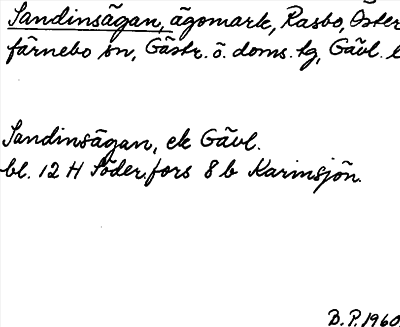 Sandinsägan, ägomark, Rasbo, Öster
färnebo sn, Gästr. ö. doms. tg, Gävl. l
Sandinsägan, ek Gävl.
bl. 12 H Söderfors 8 b Karinsjön.
B.P. 1960.